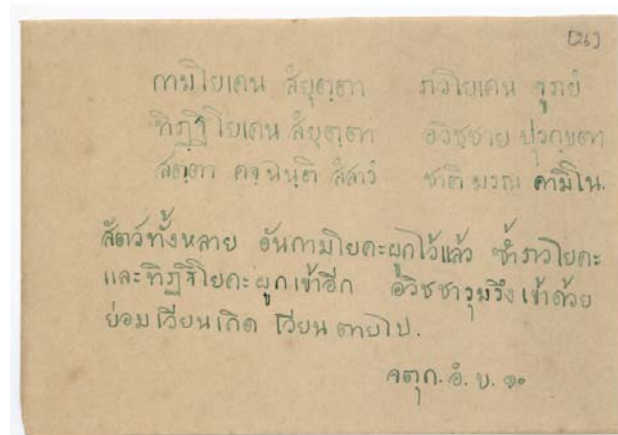 [26]
กามโยเคน สํยุตฺตา ภวโยเคน จูภยํ
ทิฏฺฐิโยเคน สํยุตฺตา อวิชฺชาย ปุรกฺขตา
สตฺตา คจฺฉนฺติ สํสารํ ชาติมรณ คามิโน.
สัตว์ทั้งหลาย อันกามโยคะผูกไว้แล้ว ซ้ำภวโยคะ
และทิฏฐิโยคะผูกเข้าอีก อวิชชารุมรึงเข้าด้วย
ย่อมเวียนเกิด เวียนตายไป.
จตุก. อํ. ๒. ๑๐